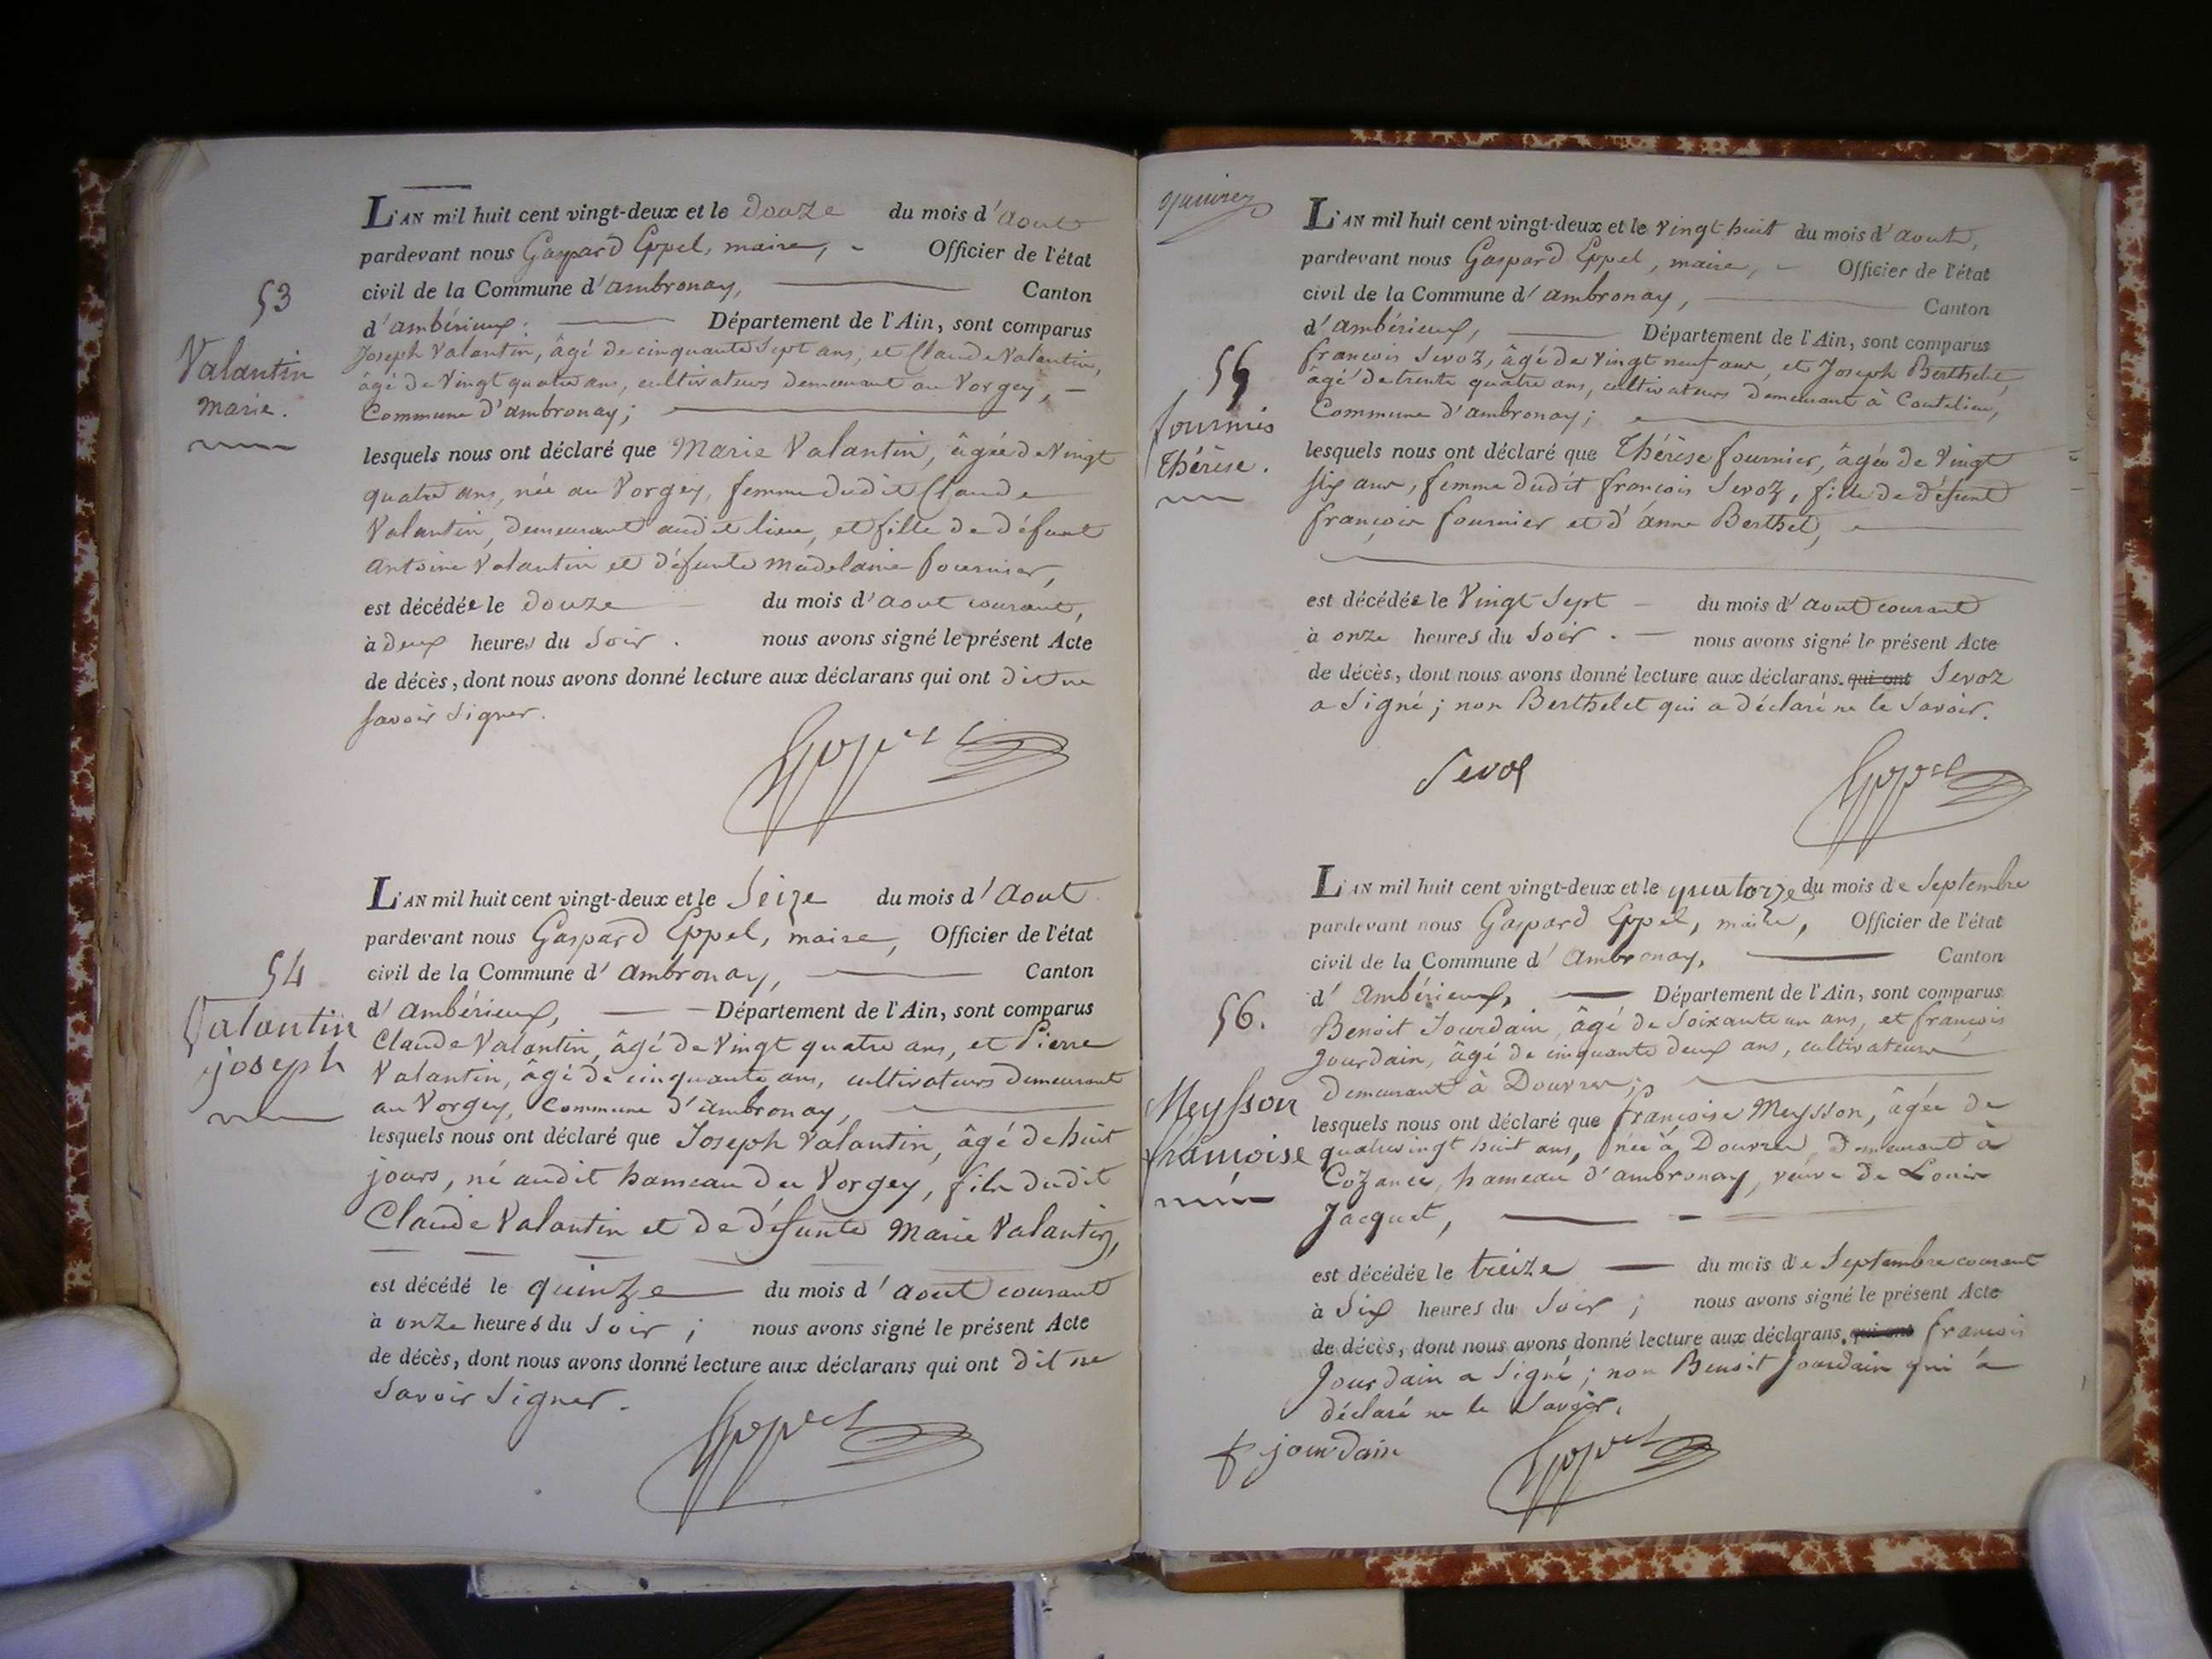 53
Valantin
marie.
L'AN mil huit cent vingt-deux et le douze du mois d'aout
pardevant nous Gaspard Eppel, maire, - Officier de l'état
civil de la Commune d'ambronay, Canton
d'ambérieux: Département de l'Ain, sont comparus
Joseph Valantin, âgé de cinquante sept ans, et Claude Valantin,
âgé de vingt quatre ans, cultivateurs demeurant au Vorgey, -
Commune d'ambronay;
lesquels nous ont déclaré que Marie Valantin, âgée de vingt
quatre ans, née au Vorgey, femme dudit Claude
Valantin, demeurant audit lieu, et fille de défunt
antoine Valantin et défunte madelaine fournier,
est décédée le douze du mois d'aout courant,
à deux heures du soir. nous avons signé le présent Acte
de décès, dont nous avons donné lecture aux déclarans qui ont dit ne
savoir signer.
Eppel
54
Valantin
joseph
L'AN mil huit cent vingt-deux et le Seize du mois d'aout
pardevant nous Gaspard Eppel, maire, Officier de l'état
civil de la Commune d'ambronay, Canton
d'ambérieux, Département de l'Ain, sont comparus
Claude Valantin, âgé de vingt quatre ans, et Pierre
Valantin, âgé de cinquante ans, cultivateurs demeurant
au Vorgey, Commune d'ambronay,
lesquels nous ont déclaré que Joseph Valantin, âgé de huit
jours, né audit hameau du Vorgey, fils dudit
Claude Valantin et de défunte Marie Valantin,
est décédé le quinze du mois d'aout courant
à onze heures du soir; nous avons signé le présent Acte
de décès, dont nous avons donné lecture aux déclarans qui ont dit ne
savoir signer.
Eppel
55
fournier
thérèse.
L'AN mil huit cent vingt-deux et le vingt huit du mois d'aout,
pardevant nous Gaspard Eppel, maire, - Officier de l'état
civil de la Commune d'ambronay, Canton
d'ambérieux, Département de l'Ain, sont comparus
françois Sevoz, âgé de vingt neuf ans, et Joseph Berthelet,
âgé de trente quatre ans, cultivateurs demeurant à Coutelieu,
Commune d'ambronay;
lesquels nous ont déclaré que Thérèse fournier, âgée de vingt
six ans, femme dudit françois Sevoz, fille de défunt
françois fournier et d'anne Berthet,
est décédée le vingt sept du mois d'aout courant
à onze heures du soir. nous avons signé le présent Acte
de décès, dont nous avons donné lecture aux déclarans. qui ont Sevoz
a signé; non Berthelet qui a déclaré ne le savoir.
Sevoz
Eppel
56.
Meysson
françoise
L'AN mil huit cent vingt-deux et le quatorze du mois de Septembre
pardevant nous Gaspard Eppel, maire, Officier de l'état
civil de la Commune d'Ambronay, Canton
d'Ambérieux, Département de l'Ain, sont comparus
Benoit Jourdain, âgé de soixante un ans, et françois
Jourdain, âgé de cinquante deux ans, cultivateurs
demeurant à Douvres;
lesquels nous ont déclaré que françoise Meysson, âgée de
quatrevingt huit ans, née à Douvres, demeurant à
Cozance, hameau d'ambronay, veuve de Louis
Jacquet,
est décédée le treize du mois de Septembre courant
à six heures du soir; nous avons signé le présent Acte
de décès, dont nous avons donné lecture aux déclarans. qui ont françois
Jourdain a signé; non Benoit Jourdain qui a
déclaré ne le savoir.
f jourdain
Eppel